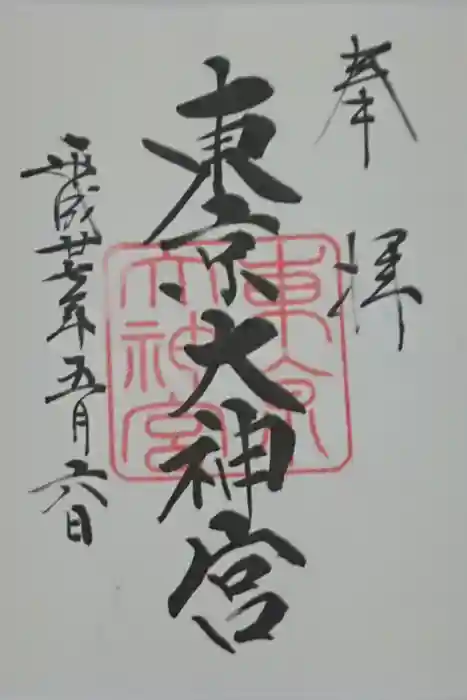 奉拝
東京大神宮
東京大神宮
平成廿七年五月六日